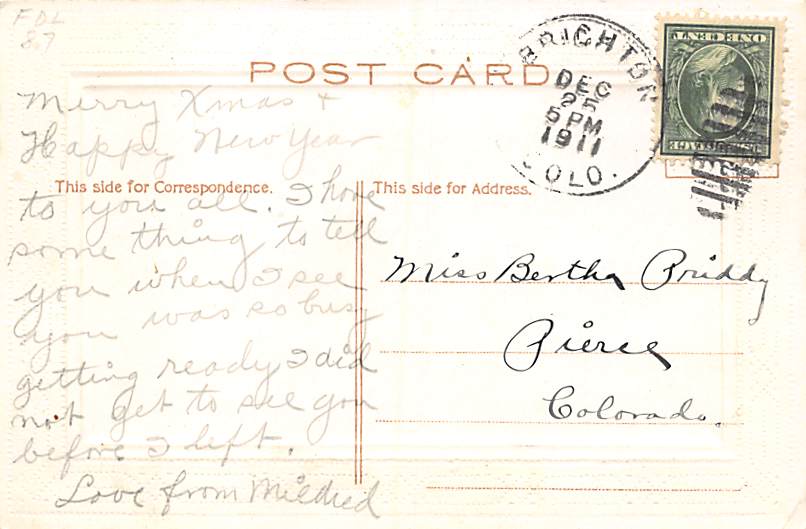 FDL
8.7
POST CARD
BRIGHTON
DEC
25
5 PM
1911
COLO.
ONE CENT
Merry Xmas +
Happy New Year
This side for Correspondence.
to you all. I have
some thing to tell
you when I see
you was so busy
getting ready I did
not get to see you
before I left.
Love from Mildred
This side for Address.
Miss Bertha Priddy
Pierce
Colorado.